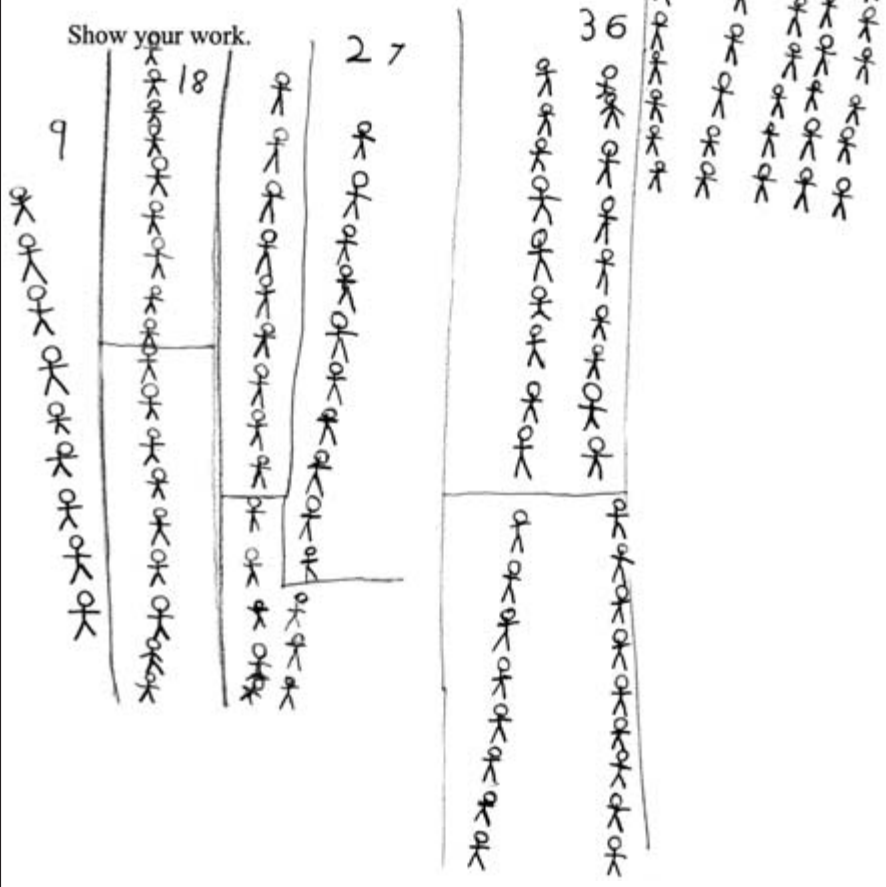 Show your work.
9
18
27
36